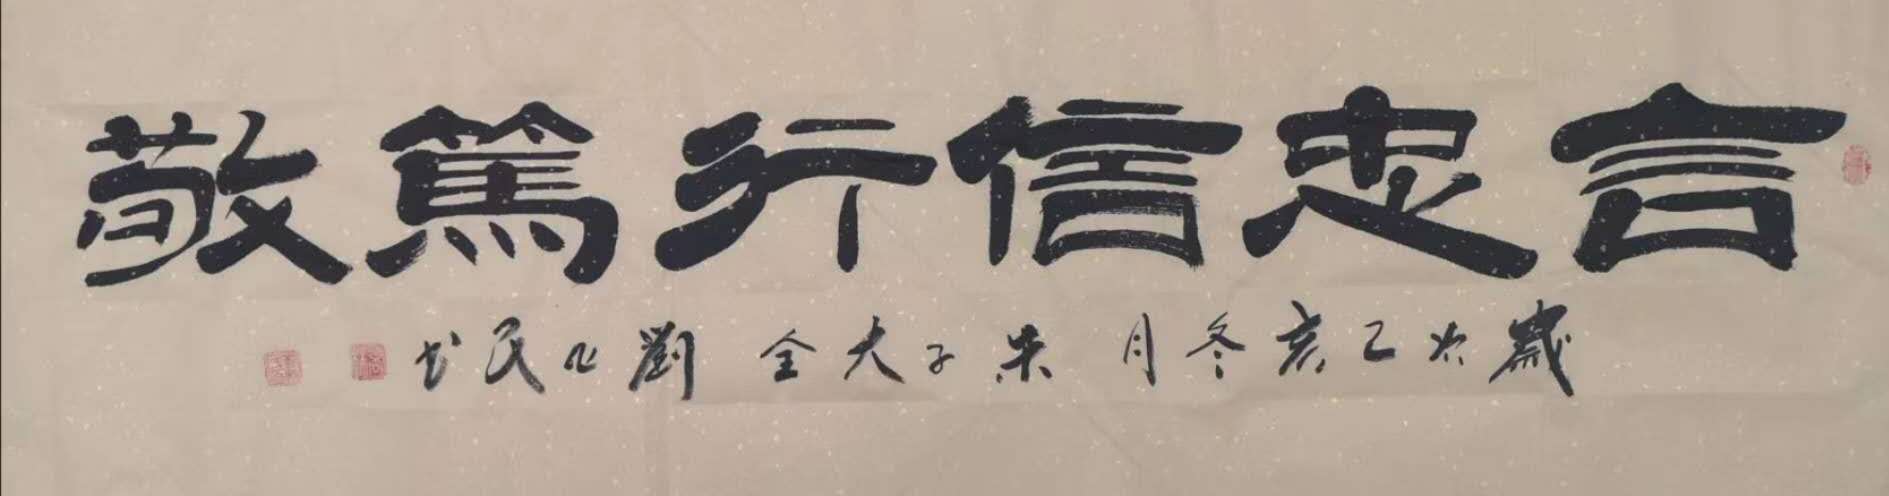 言忠信行篤敬
歲次乙亥冬月朱子大全劉化民书